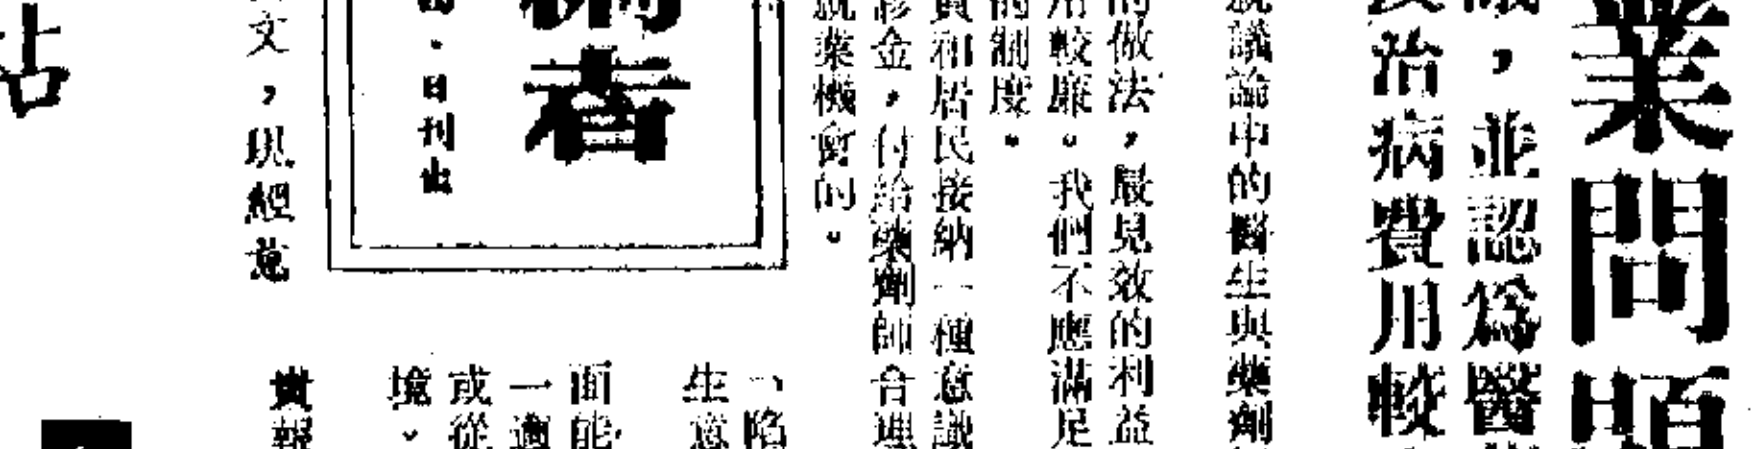 業問題
議，並認為醫
治病費用較
議論中的醫生與藥劑
的做法，最見效的利益
用較廉。我們不應滿足
的制度。
員和居民接納一種意識
金，付給藥劑師合理
就業機會的。
者
日刊出
文，現經
、陷
生意
面能
一
或從
境。
貴報
站